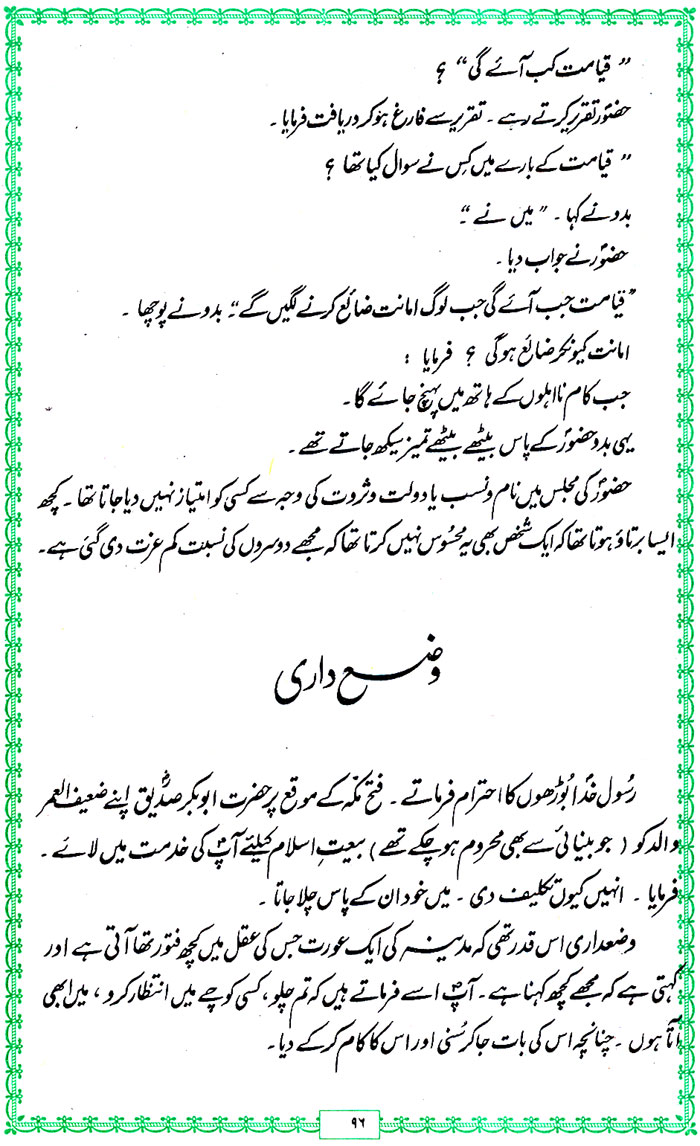 " قیامت کب آئے گی " ؟
حضورؐ تقریر کرتے رہے ۔ تقریر سے فارغ ہوکر دریافت فرمایا ۔
" قیامت کے بارے میں کس نے سوال کیا تھا ؟
بدو نے کہا ۔ " میں نے "۔
حضورؐ نے جواب دیا ۔
" قیامت جب آئے گی جب لوگ امانت ضائع کرنے لگیں گے "۔ بدو نے پوچھا ۔
امانت کیونکر ضائع ہوگی ؟ فرمایا :
جب کام نااہلوں کے ہاتھ میں پہنچ جائے گا ۔
یہی بدو حضورؐ کے پاس بیٹھے بیٹھے تمیز سیکھ جاتے تھے ۔
حضورؐ کی مجلس میں نام و نسب یا دولت و ثروت کی وجہ سے کسی کو امتیاز نہیں دیا جاتا تھا ۔ کچھ
ایسا برتاؤ ہوتا تھا کہ ایک شخص بھی یہ محسوس نہیں کرتا تھا کہ مجھے دوسروں کی نسبت کم عزت دی گئی ہے ۔
وضع داری
رسُول خداؐ بُوڑھوں کا احترام فرماتے ۔ فتح مکّہ کے موقع پر حضرت ابوبکر صدیقؓ اپنے ضعیف العمر
والد کو ( جو بینائی سے بھی محروم ہو چکے تھے ) بیعتِ اسلام کیلئے آپؐ کی خدمت میں لائے ۔
فرمایا ۔ انہیں کیوں تکلیف دی ۔ میں خود ان کے پاس چلا جاتا ۔
وضعداری اس قدر تھی کہ مدینہ کی ایک عورت جس کی عقل میں کچھ فتور تھا آتی ہے اور
کہتی ہے کہ مجھے کچھ کہنا ہے ۔ آپؐ اسے فرماتے ہیں کہ تم چلو ، کسی کوچے میں انتظار کرو ، میں ابھی
آتا ہوں ۔ چنانچہ اس کی بات جا کر سُنی اور اس کا کام کر کے دیا ۔
۹۶